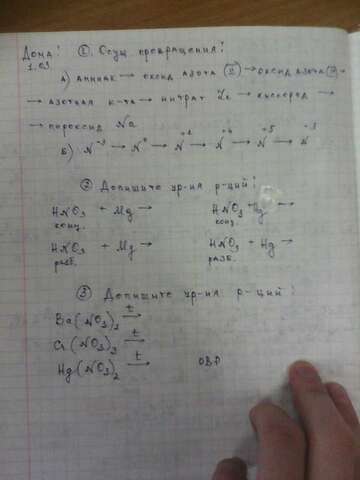 Дома! ① Осущ. превращения:
1.03.
А) Аммиак → оксид азота (II) → оксид азота
→ азотная к-та → нитрат → кислород →
→ пероксид Na
Б) N⁻³ → N⁰ → N⁺² → N⁺⁴ → N⁺⁵ → N⁻³
② Допишите ур-ния р-ций:
HNO₃ + Mg → HNO₃ + Hg →
конц. конц.
HNO₃ + Mg → HNO₃ + Hg →
разб. разб.
③ Допишите ур-ния р-ций:
Ba(NO₃)₂ t→
Cr(NO₃)₃ t→
Hg(NO₃)₂ t→ ОВР